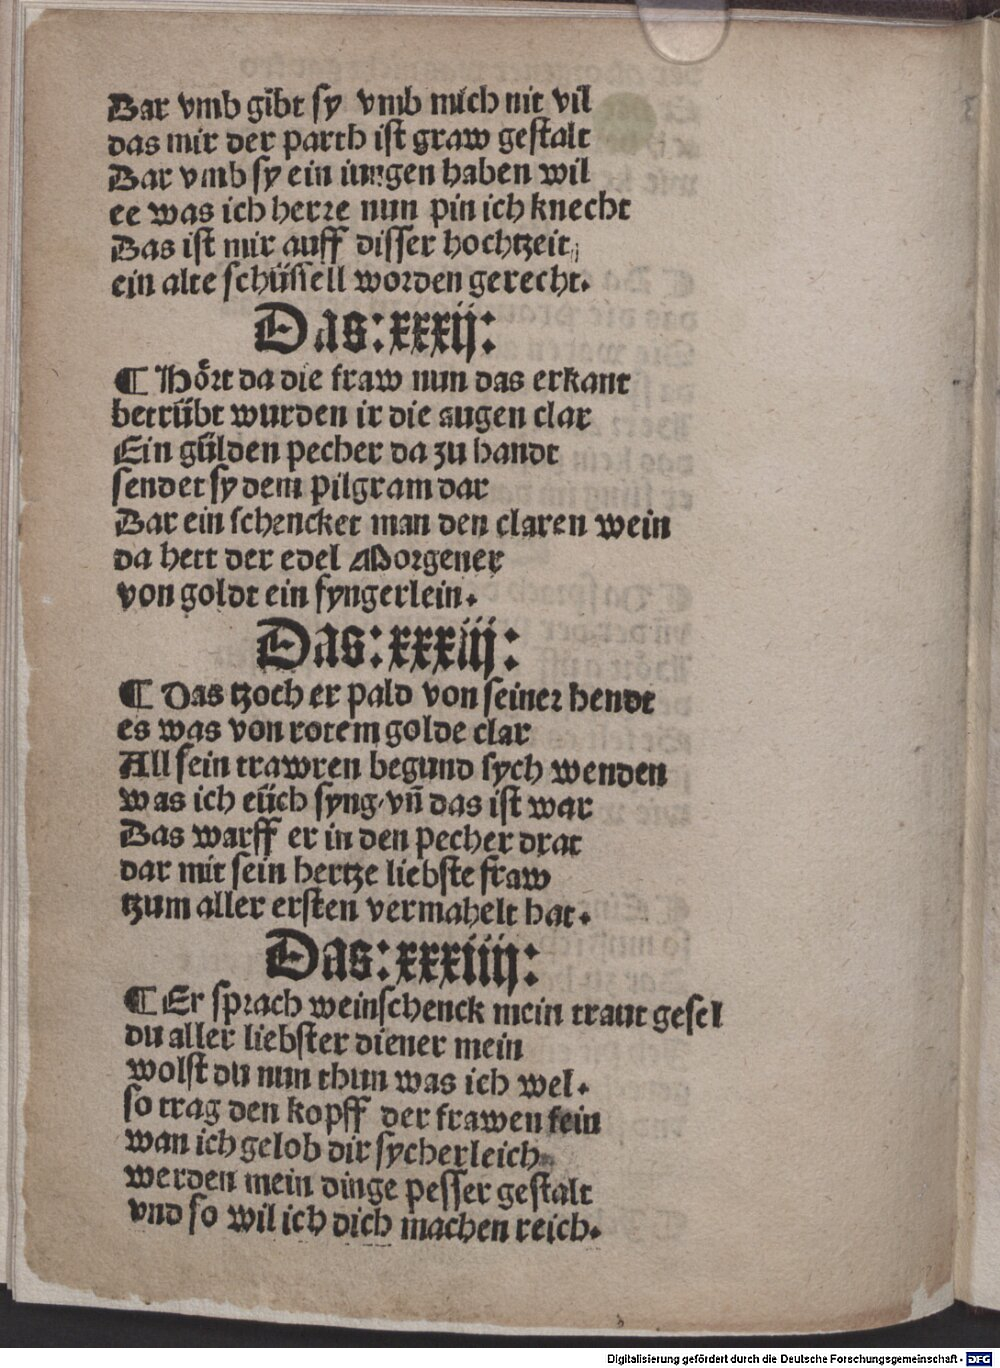 Dar vmb gibt sy vmb mich nit vil
das mir der parth ist graw gestalt
Dar vmb sy ein iungen haben wil
ee was ich herre nun pin ich knecht
Das ist mir auff disser hochtzeit
ein alte schüssell worden gerecht.
Das: xxxij:
¶ Hoͤrt da die fraw nun das erkant
betruͤbt wurden ir die augen clar
Ein guͤlden pecher da zu handt
sendet sy dem pilgram dar
Dar ein schencket man den claren wein
da hett der edel Morgener
von goldt ein fyngerlein.
Das: xxxiij:
¶ Das tzoch er pald von seiner hendt
es was von rotem golde clar
All sein trawren begund sych wenden
was ich eüch syng, vñ das ist war
Das warff er in den pecher drat
dar mit sein hertze liebste fraw
tzum aller ersten vermahelt hat.
Das: xxxiiij:
¶ Er sprach weinschenck mein traut gesel
du aller liebster diener mein
wolst du nun thun was ich wel.
so trag den kopff der frawen fein
wan ich gelob dir sycherleich
werden mein dinge pesser gestalt
vnd so wil ich dich machen reich.
Digitalisierung gefördert durch die Deutsche Forschungsgemeinschaft - DFG